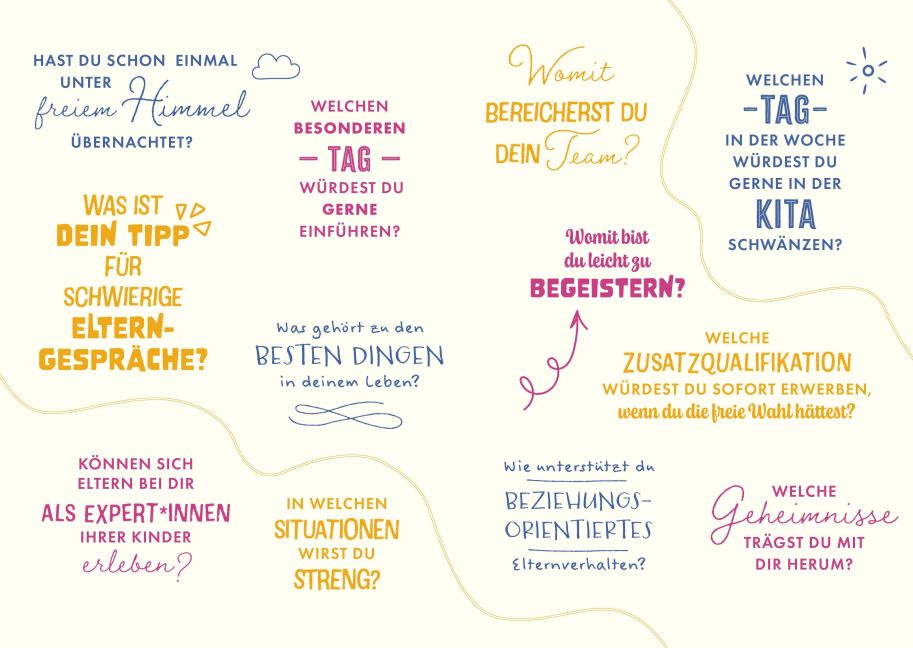 HAST DU SCHON EINMAL
UNTER
freiem Himmel
ÜBERNACHTET?
WELCHEN
BESONDEREN
– TAG –
WÜRDEST DU
GERNE
EINFÜHREN?
Womit
BEREICHERST DU
DEIN Team?
WELCHEN
–TAG–
IN DER WOCHE
WÜRDEST DU
GERNE IN DER
KITA
SCHWÄNZEN?
WAS IST
DEIN TIPP
FÜR
SCHWIERIGE
ELTERN-
GESPRÄCHE?
Womit bist
du leicht zu
BEGEISTERN?
Was gehört zu den
BESTEN DINGEN
in deinem Leben?
WELCHE
ZUSATZQUALIFIKATION
WÜRDEST DU SOFORT ERWERBEN,
wenn du die freie Wahl hättest?
KÖNNEN SICH
ELTERN BEI DIR
ALS EXPERT*INNEN
IHRER KINDER
erleben?
IN WELCHEN
SITUATIONEN
WIRST DU
STRENG?
Wie unterstützt du
BEZIEHUNGS-
ORIENTIERTES
Elternverhalten?
WELCHE
Geheimnisse
TRÄGST DU MIT
DIR HERUM?